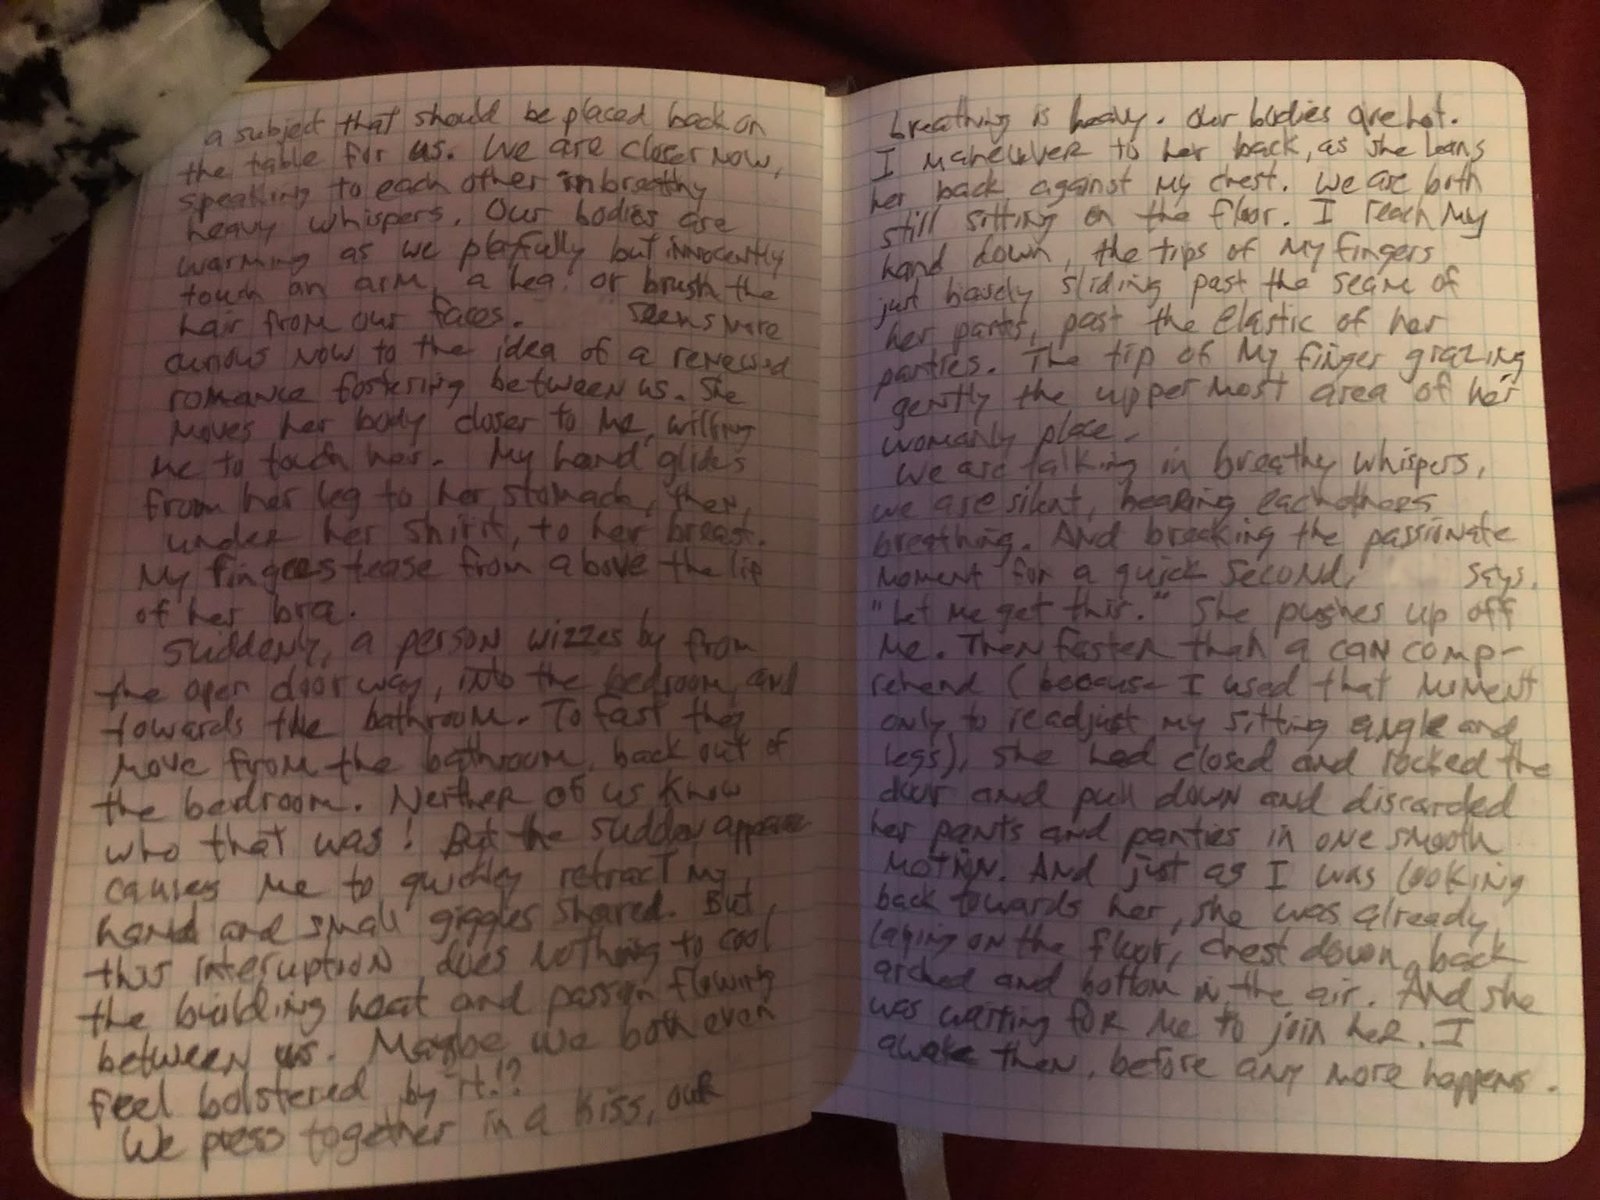 a subject that should be placed back on
the table for us. We are closer now,
speaking to each other in breathy
heavy whispers. Our bodies are
warming as we playfully but innocently
touch an arm, a leg, or brush the
hair from our faces. seems more
curious now to the idea of a renewed
romance fostering between us. She
moves her body closer to me, willing
me to touch her. My hand glides
from her leg to her stomach, then,
under her shirt, to her breast.
My fingers tease from above the lip
of her bra.
Suddenly, a person wizzes by from
the open doorway, into the bedroom, and
towards the bathroom. To fast they
move from the bathroom, back out of
the bedroom. Neither of us know
who that was! But the sudden appear
causes me to quickly retract my
hand and small giggles shared. But,
this interuption does nothing to cool
the building heat and passion flowing
between us. Maybe we both even
feel bolstered by it!?
We press together in a kiss, our
breathing is heavy. Our bodies are hot.
I maneuver to her back, as she leans
her back against my chest. We are both
still sitting on the floor. I reach my
hand down, the tips of my fingers
just barely sliding past the seam of
her pants, past the elastic of her
panties. The tip of my finger grazing
gently the upper most area of her
womanly place.
We are talking in breathy whispers,
we are silent, hearing eachothers
breathing. And breaking the passionate
moment for a quick second, says,
"Let me get this." She pushes up off
me. Then faster than a can comp-
rehend (because I used that moment
only to readjust my sitting angle and
legs), she had closed and locked the
door and pull down and discarded
her pants and panties in one smooth
motion. And just as I was looking
back towards her, she was already
laying on the floor, chest down, back
arched and bottom in the air. And she
was waiting for me to join her. I
awake then, before any more happens.